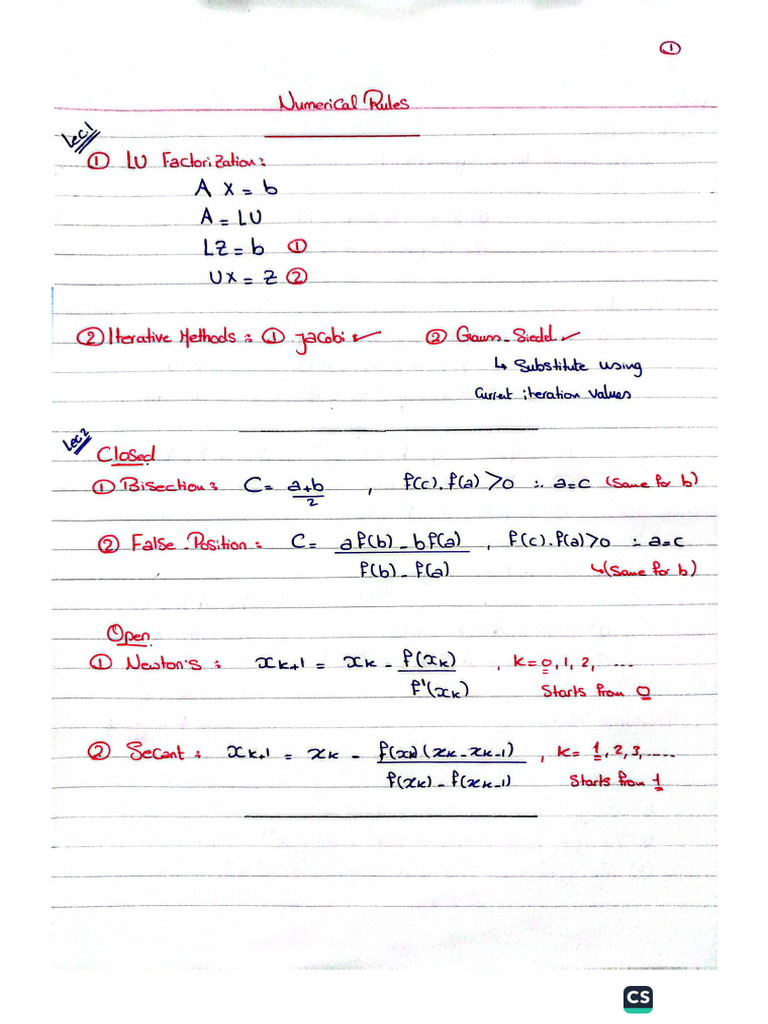 ①
Numerical Rules
Lec.1
① LU Factorization:
A x = b
A = LU
LZ = b ①
Ux = Z ②
② Iterative Methods: ① Jacobi ✓ ② Gauss-Siedel ✓
↳ Substitute using
Current iteration values
Lec 2
Closed
① Bisection: C = a+b/2 , f(c).f(a) > 0 ∴ a=c (Same for b)
② False-Position: C = af(b) - bf(a) / f(b) - f(a) , f(c).f(a)>0 ∴ a=c
↳(Same for b)
Open
① Newton's: xₖ₊₁ = xₖ - f(xₖ)/f'(xₖ) , k=0,1,2, ....
Starts from 0
② Secant: xₖ₊₁ = xₖ - f(xₖ)(xₖ-xₖ₋₁) / f(xₖ)-f(xₖ₋₁) , k= 1,2,3,.....
Starts from 1
CS